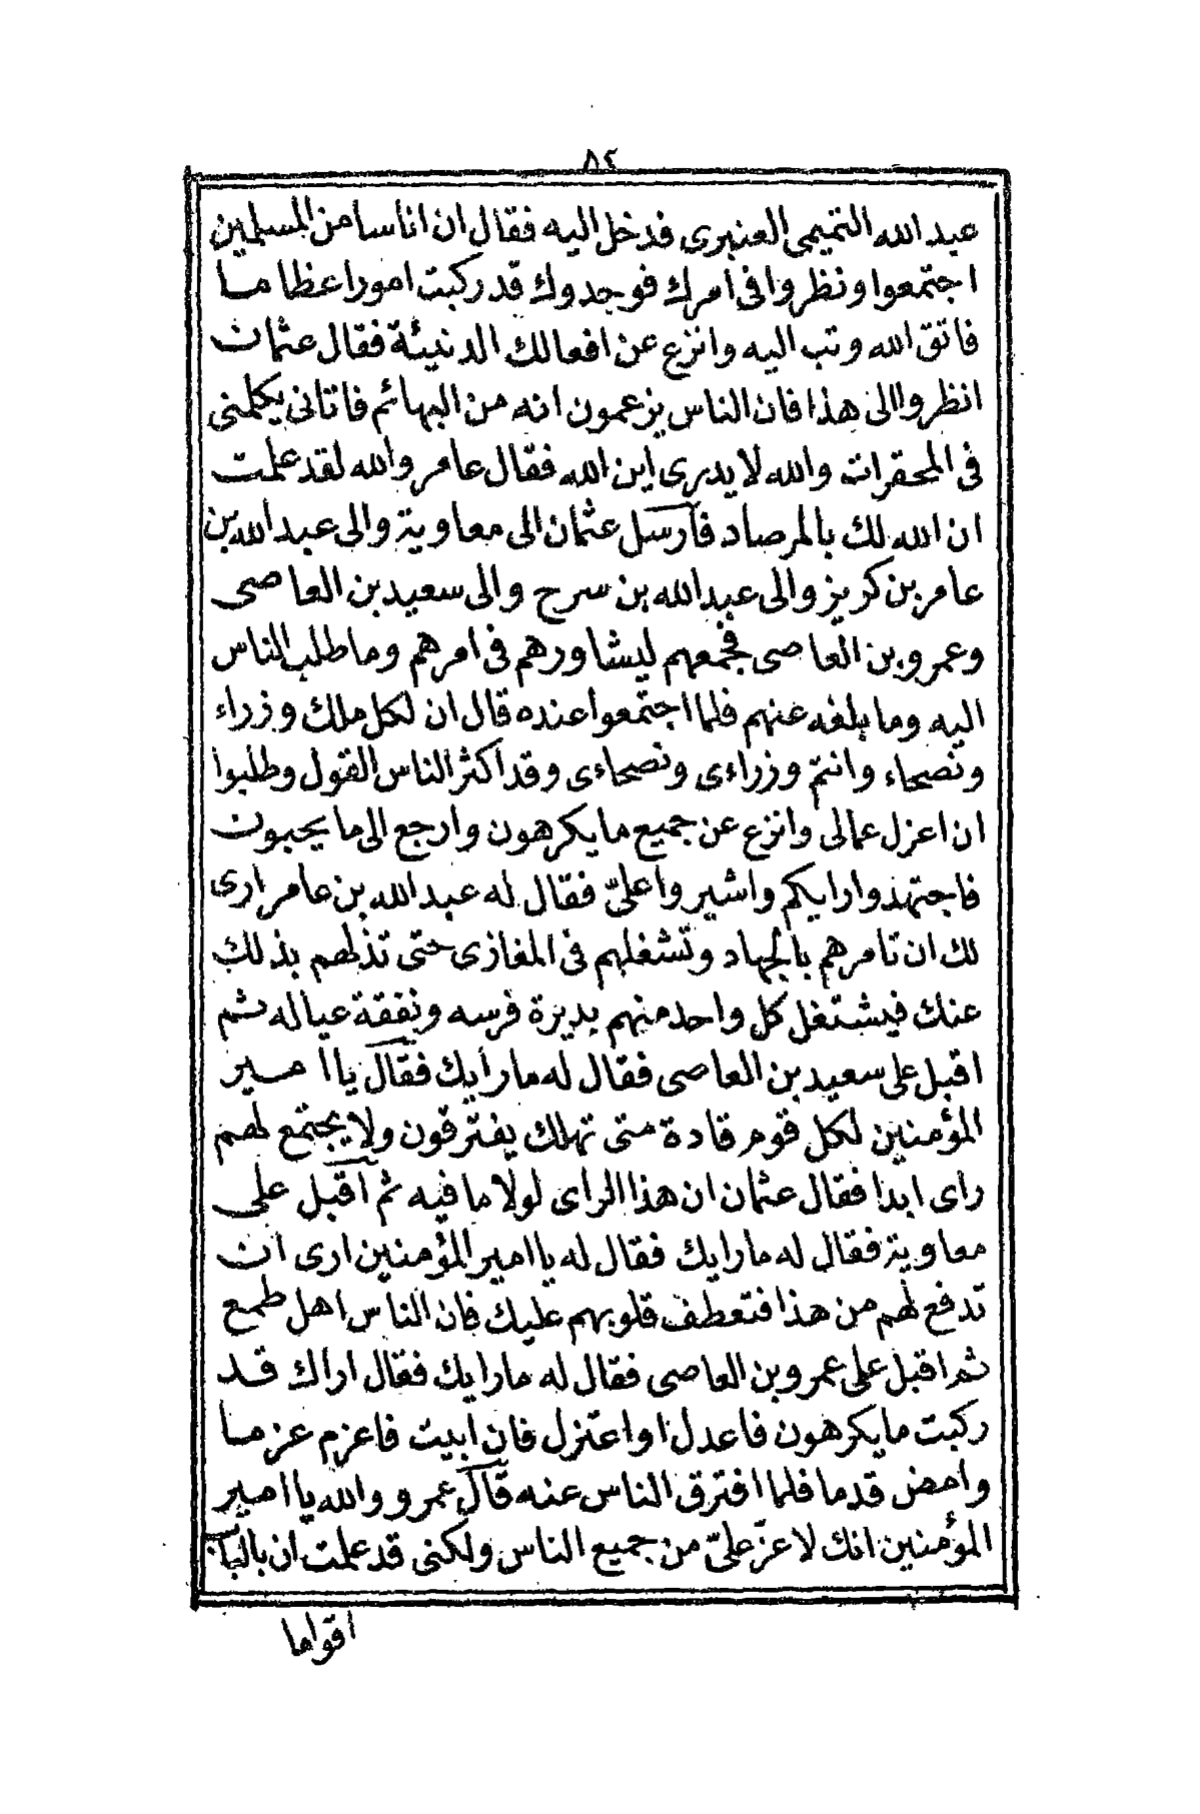 ٨٤
عبد الله التميمي العنبرى فدخل اليه فقال ان اناسا من المسلمين
اجتمعوا ونظروا فى امرك فوجدوك قد ركبت امورا عظاما
فاتق الله وتب اليه وانزع عن افعالك الدنيئة فقال عثمان
انظروا الى هذا فان الناس يزعمون انه من البهائم فاتانى يكلمنى
فى المحقرات والله لا يدرى اين الله فقال عامر والله لقد علمت
ان الله لك بالمرصاد فارسل عثمان الى معاوية والى عبد الله بن
عامر بن كريز والى عبد الله بن سرح والى سعيد بن العاصى
وعمرو بن العاصى فجمعهم ليشاورهم فى امرهم وما طلب الناس
اليه وما بلغه عنهم فلما اجتمعوا عنده قال ان لكل ملك وزراء
ونصحاء وانتم وزراءى ونصحاءى وقد اكثر الناس القول وطلبوا
ان اعزل عمالى وانزع عن جميع ما يكرهون وارجع الى ما يحبون
فاجتهذوا رايكم واشيروا علىّ فقال له عبد الله بن عامر ارى
لك ان تامرهم بالجهاد وتشغلهم فى المغازى حتى تذلهم بذلك
عنك فيشتغل كل واحد منهم بديرة فرسه ونفقة عياله ثم
اقبل على سعيد بن العاصى فقال له ما رأيك فقال يا امير
المؤمنين لكل قوم قادة متى تهلك يفترقون ولا يجتمع لهم
راى ابدا فقال عثمان ان هذا الراى لولا ما فيه ثم اقبل على
معاوية فقال له ما رايك فقال له يا امير المؤمنين ارى ان
تدفع لهم من هذا فتعطف قلوبهم عليك فان الناس اهل طمع
ثم اقبل على عمرو بن العاصى فقال له ما رايك فقال اراك قد
ركبت ما يكرهون فاعدل او اعتزل فان ابيت فاعزم عزما
وامض قدما فلما افترق الناس عنه قال عمرو والله يا امير
المؤمنين انك لاعزّ علىّ من جميع الناس ولكنى قد علمت ان بالباب
اقواما